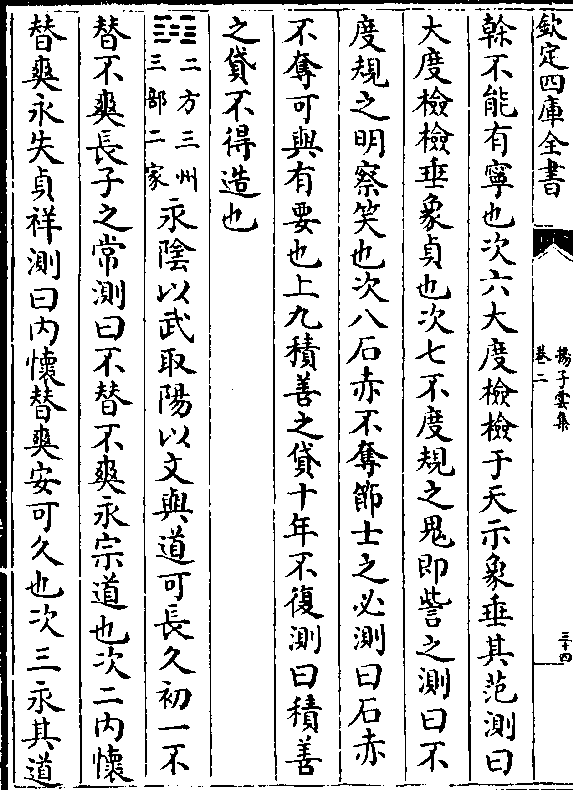 欽定四庫全書
揚子雲集
卷二
三十四
幹不能有寧也次六大度檢檢于天示象垂其范測曰
大度檢檢垂象貞也次七不度規之鬼即訾之測曰不
度規之明察笑也次八石赤不奪節士之必測曰石赤
不奪可與有要也上九積善之貸十年不復測曰積善
之貸不得造也
二方三州
三部二家
永陰以武取陽以文與道可長久初一不
替不爽長子之常測曰不替不爽永宗道也次二内懷
替爽永失貞祥測曰内懷替爽安可久也次三永其道